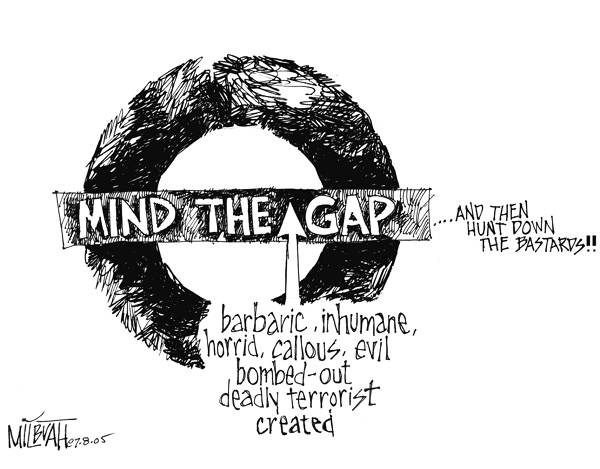 MIND THE GAP
...AND THEN
HUNT DOWN
THE BASTARDS!!
barbaric, inhumane,
horrid, callous, evil
bombed-out
deadly terrorist
created
07.8.05